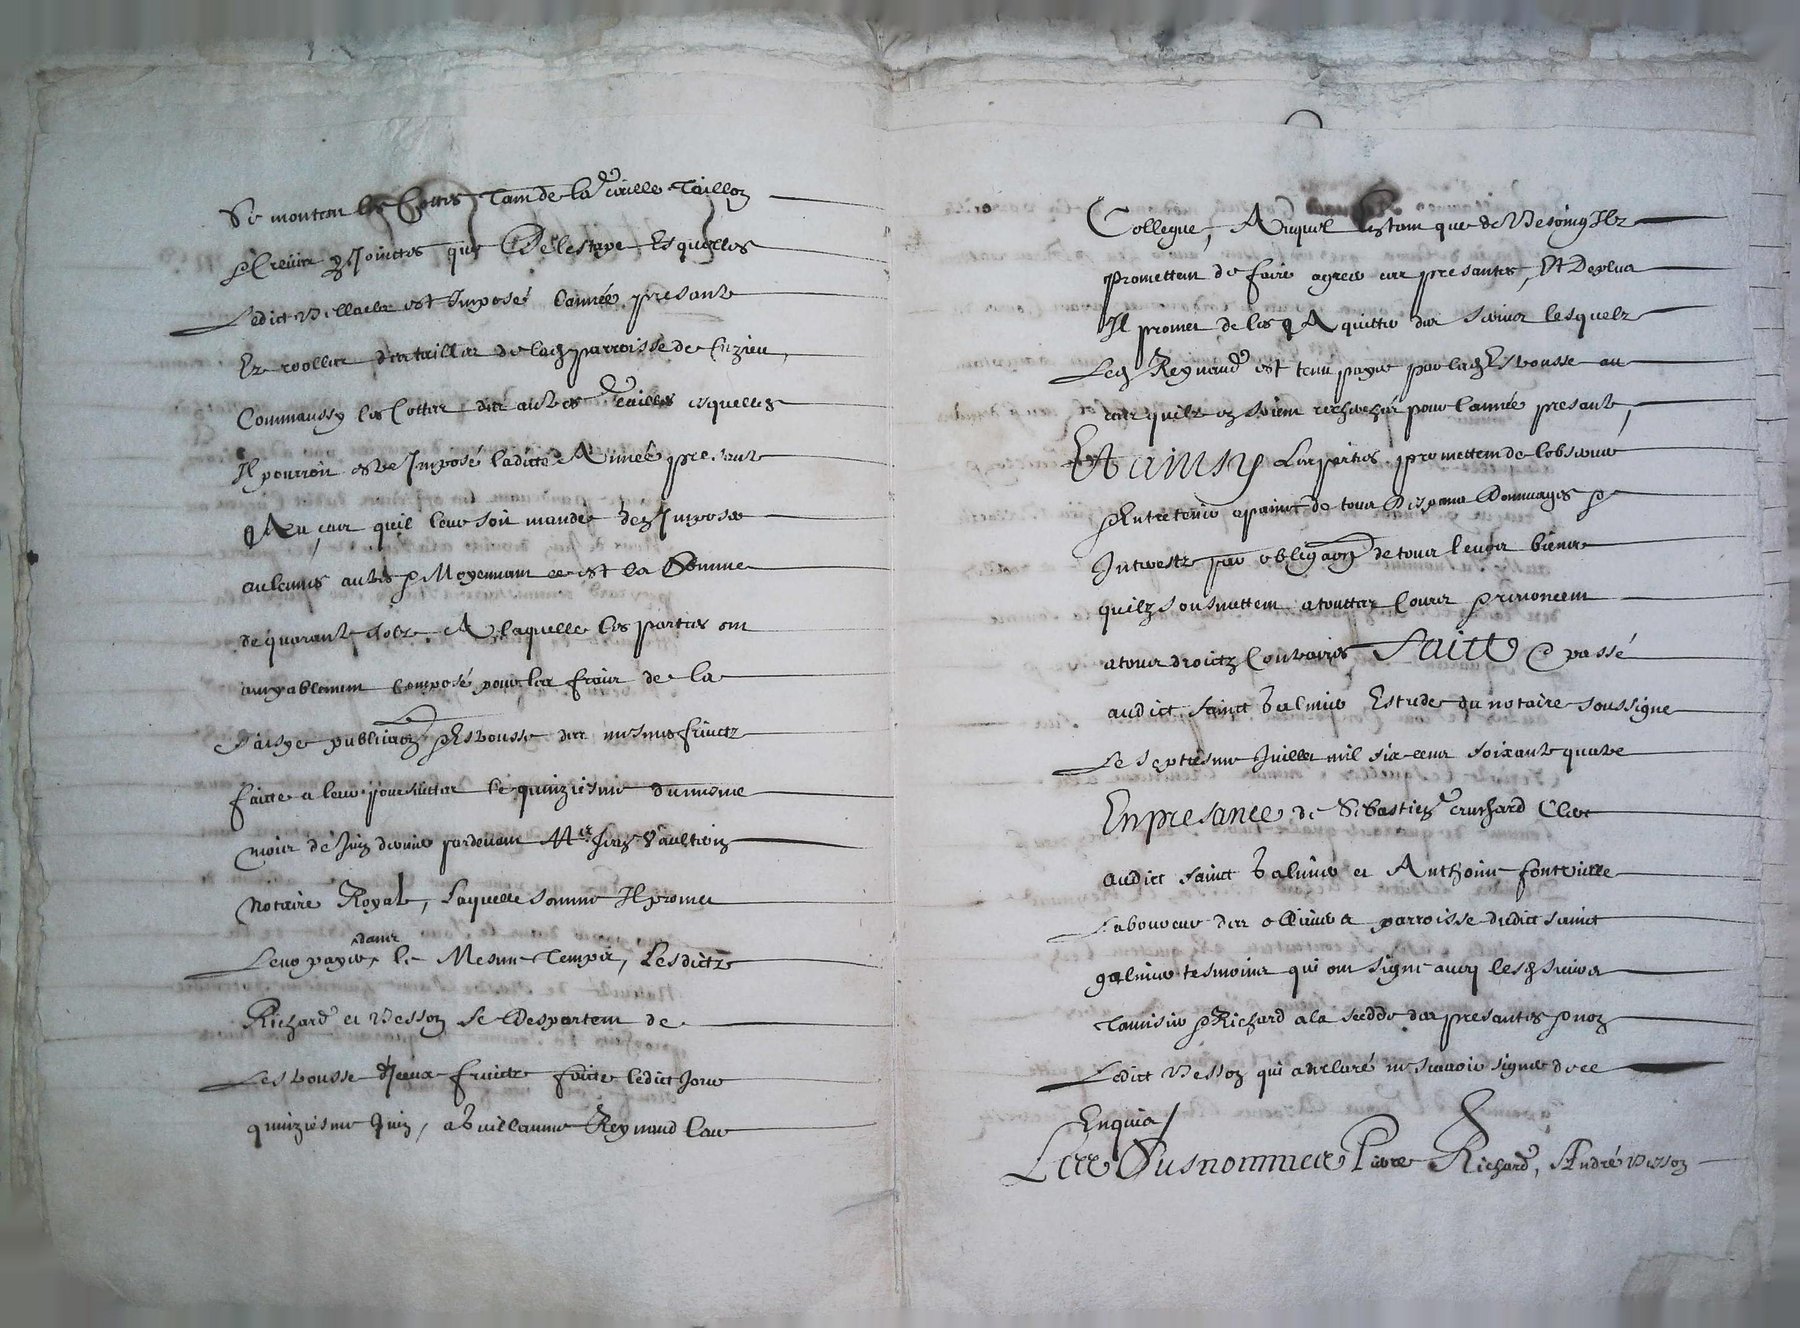 Se montent les Cottes Tant de la Taille Taillon
& Creues y Jointes que De lestape Esquelles
Ledict Villaclar est Imposé l'année presant
Ez roolles des tailles de lad parroisse de Cuzieu,
Comm'aussy les Cottes des autres Tailles esquelles
Il pourroit estre Imposé ladicte Année presant
qu'il leur soit mandé den Imposer
aulcunes autres & Moyennant ce est la Somme
de quarante solz. A laquelle les parties ont
amyablement composé pour les fraix de la
saisye publication & Estrousse des mesmes fruictz
faicte a leur poursuittes le quinziesme du mesme
mois de Juin dernier pardevant Me Jean
Notaire Royal, Laquelle somme Il promet
Leur payer dans le Mesme Temps, Lesdictz
Richard et Besson se Despartent de
Lestrousse d'Iceux fruictz faicte ledict Jour
quinziesme Juin, a Guillaume Reynaud leur
Collegue, Auquel Entant que de Besoing Ilz
promettent de faire agreer ces presantes, Et Deplus
Il promet de les Aquitter des sieurs lesquelz
Led Reynaud est tenu payer par lad Estrousse au
cas quilz en soient recherchés pour l'année presant,
Et ainsy Les parties promettent de lobserver
& Entretenir a paine de tous Despans Dommages &
Interestz par obligation de tous leurs biens
quilz sousmettent a touttes Cours & renoncent
a tous droictz Contraires Faict & passé
audict sainct Galmier Estude du notaire soussigne
Le septiesme Juillet mil six cens soixante quatre
En presance de Sebastien Cruchard Clerc
audict sainct Galmier et Anthoine
Laboureur des parroisse dudict sainct
galmier tesmoins qui ont signé avec lesd sieurs
& Richard a la cedde des presantes & non
Ledict Besson qui a declaré ne scavoir signer de ce
Enquis /
Les Susnommes Pierre Richard, André Besson